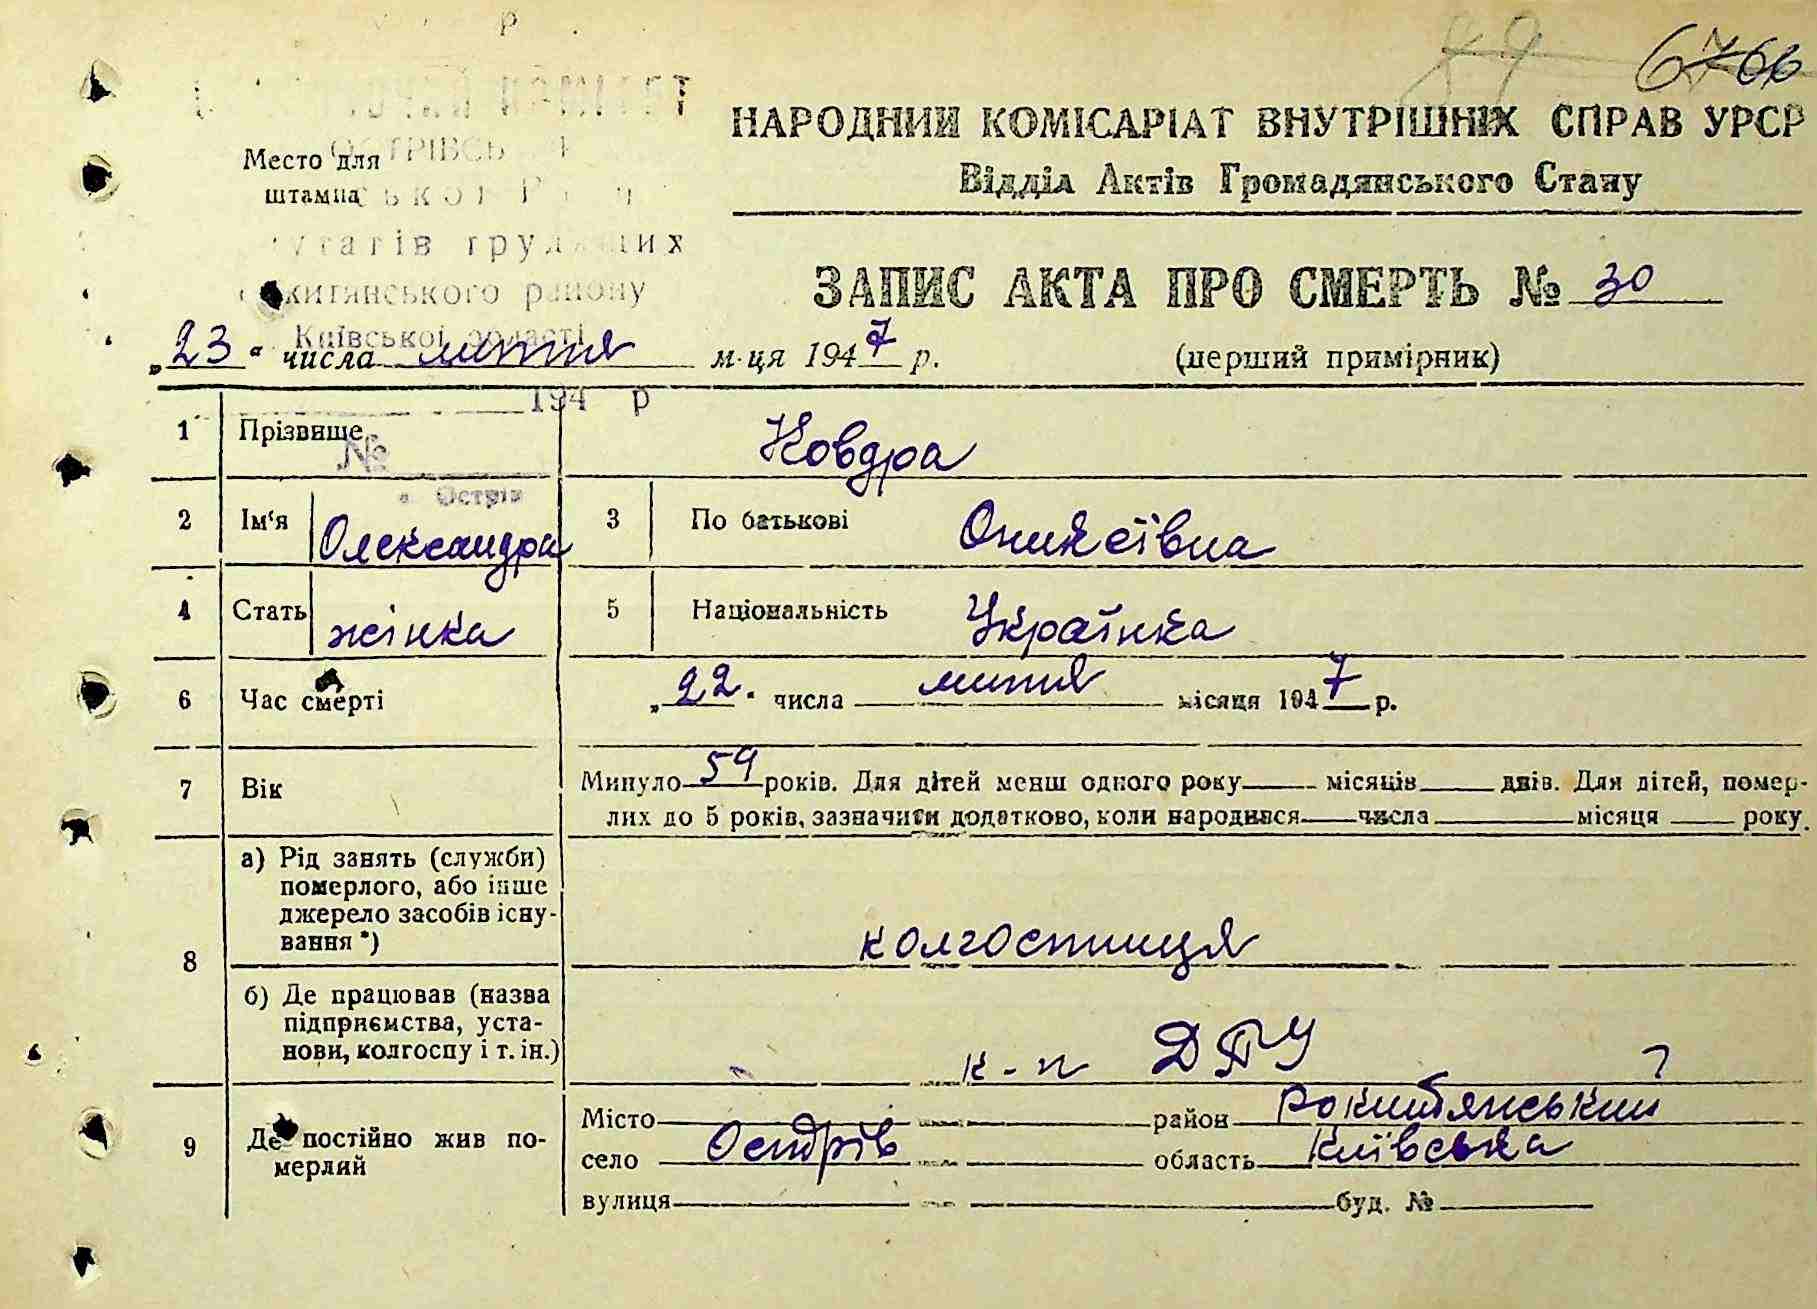 6766
НАРОДНИЙ КОМІСАРІАТ ВНУТРІШНІХ СПРАВ УРСР
Відділ Актів Громадянського Стану
Место для
штампа
трудящих
китянського району
Київської області
194 р
№
Острів
ЗАПИС АКТА ПРО СМЕРТЬ № 30
„23" числа липня м-ця 1947 р. (перший примірник)
1 Прізвище Ковдра
2 Ім'я Олександра 3 По батькові Оникеївна
4 Стать жінка 5 Національність Українка
6 Час смерті „22" числа липня місяця 1947 р.
7 Вік Минуло 59 років. Для дітей менш одного року місяців днів. Для дітей, помер-
лих до 5 років, зазначити додатково, коли народився числа місяця року.
8 а) Рід занять (служби)
померлого, або інше
джерело засобів існу-
вання *)
колгоспниця
б) Де працював (назва
підприємства, уста-
нови, колгоспу і т. ін.)
к-п ДПУ
9 Де постійно жив по-
мерлий
Місто район Рокитянський
село Острів область Київська
вулиця буд. №